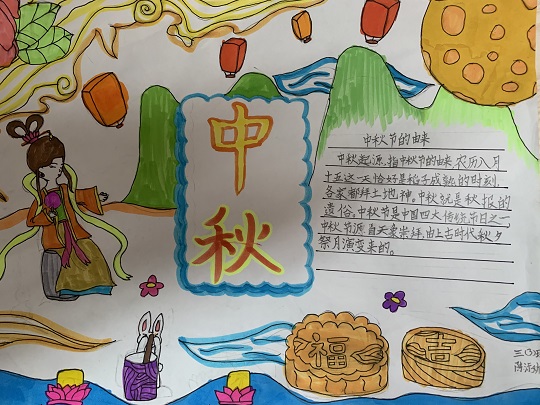 中
秋
中秋节的由来
中秋起源,指中秋节的由来,农历八月
十五这一天恰好是稻子成熟的时刻,
各家都拜土地神。中秋就是秋报的
遗俗。中秋节是中国四大传统节日之一,
中秋节源自天象崇拜,由上古时代秋夕
祭月演变来的。
福
吉